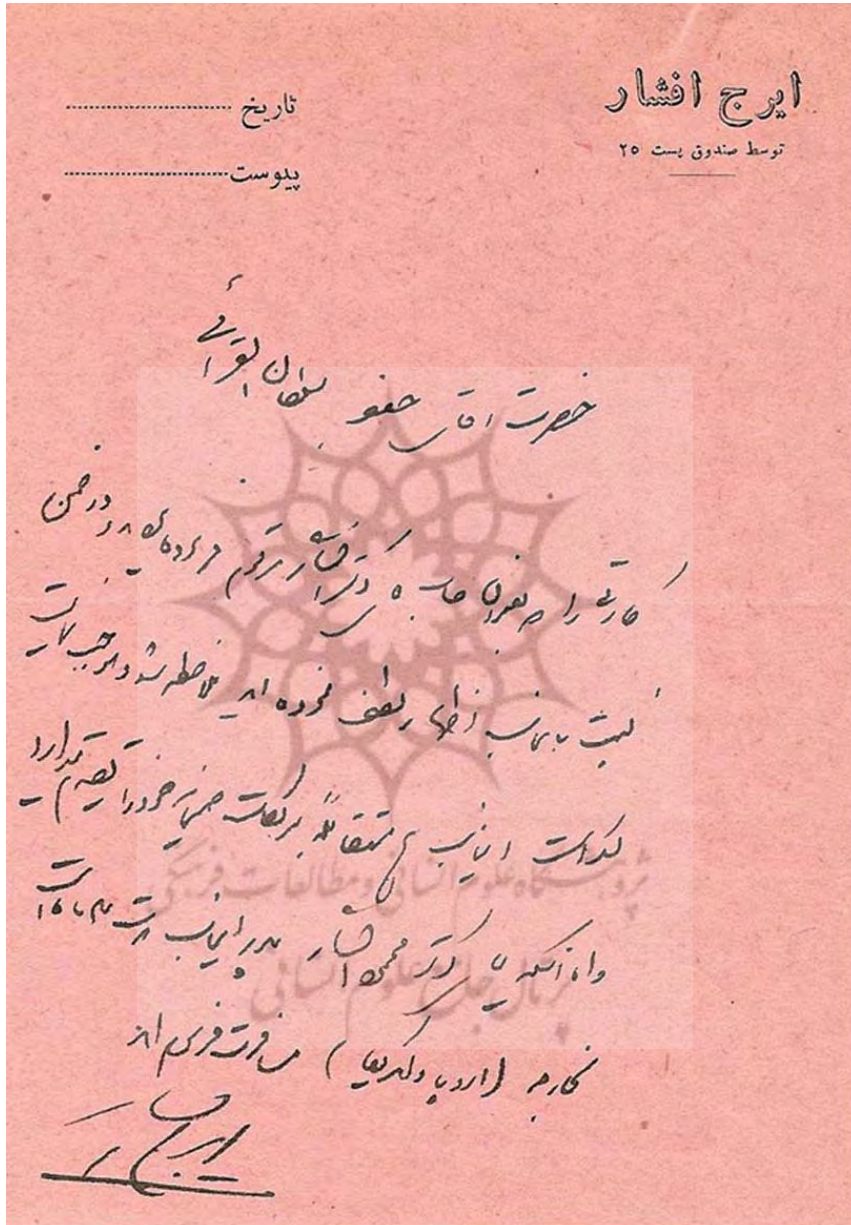 ایرج افشار
توسط صندوق پست ۲۵
تاریخ
پیوست
حضرت آقای جعفر سلطان القرائی
کارتی را که بعنوان جناب آقای دکتر افشار مرقوم فرموده‌اید و در ضمن
نسبت باینجانب اظهار لطف فرموده‌اید ملاحظه شد و موجب نهایت
تشکر است اینجانب هم متقابلاً تبریکات صمیمانه خود را تقدیم میدارد
و اما آنکه آقای دکتر محمود افشار پدر اینجانب است
بخارجه (اروپا و امریکا) مسافرت فرموده‌اند
ایرج افشار
پژوهشگاه علوم انسانی و مطالعات فرهنگی
پرتال جامع علوم انسانی